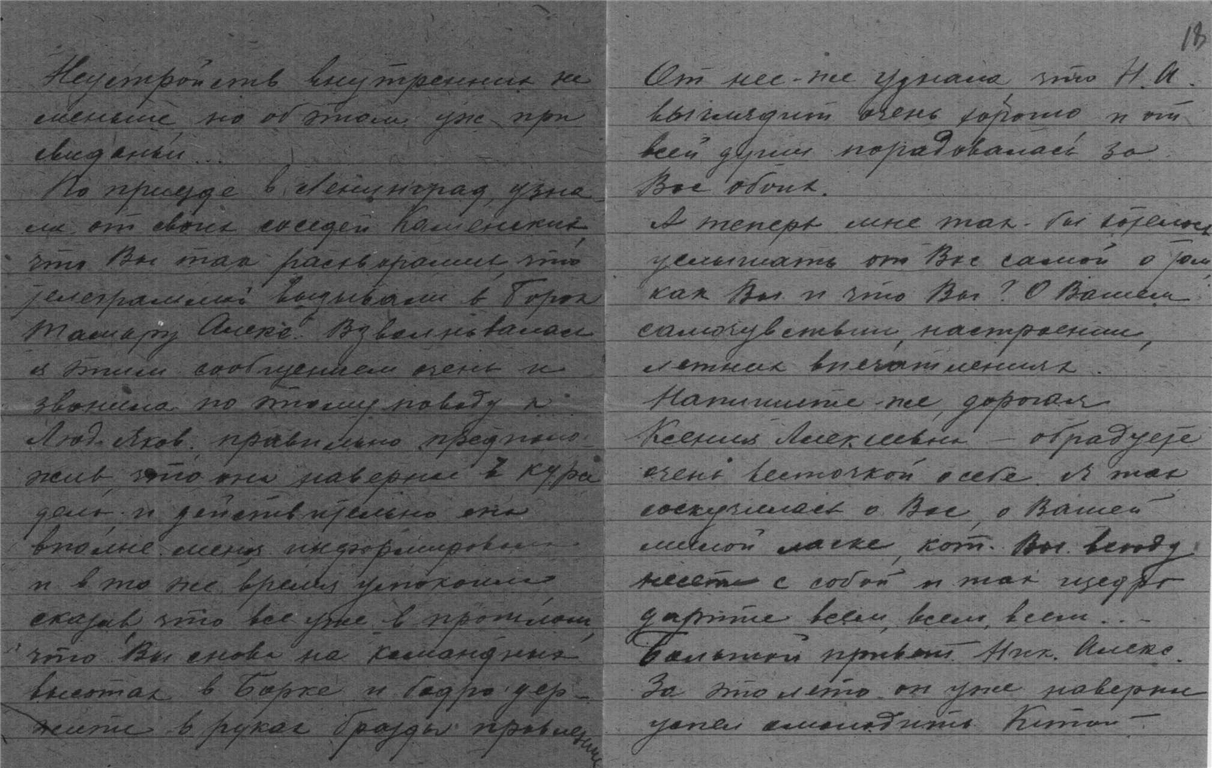 Неустройств внутренних не
меньше, но об этом уж при
свиданьи...
По приезде в Ленинград узна-
ла от своих соседей Каменских,
что Вы так расхворались, что
телеграммой вызывали в Борок
Тамару Алекс. Взволновалась
я этим сообщением очень и
звонила по этому поводу к
Люд. Яков. правильно предполо-
жив, что она наверное в курсе
дела, и действительно она
вполне меня информировала
и в то же время успокоила
сказав что все уже в прошлом,
что Вы снова на командных
высотах в Борке и бодро дер-
жите в руках бразды правления
18
От нее-же узнала что Н.А.
выглядит очень хорошо и от
всей души порадовалась за
Вас обоих.
А теперь мне так-бы хотелось
услышать от Вас самой о том
как Вы и что Вы? О Вашем
самочувствии, настроении,
летних впечатлениях.
Напишите-же, дорогая
Ксения Алексеевна — обрадуете
очень весточкой о себе. Я так
соскучилась о Вас, о Вашей
милой ласке, кот. Вы всюду
несете с собой и так щедро
дарите всем, всем, всем...
Большой привет Ник. Алекс.
За это лето он уже наверное
успел омолодить